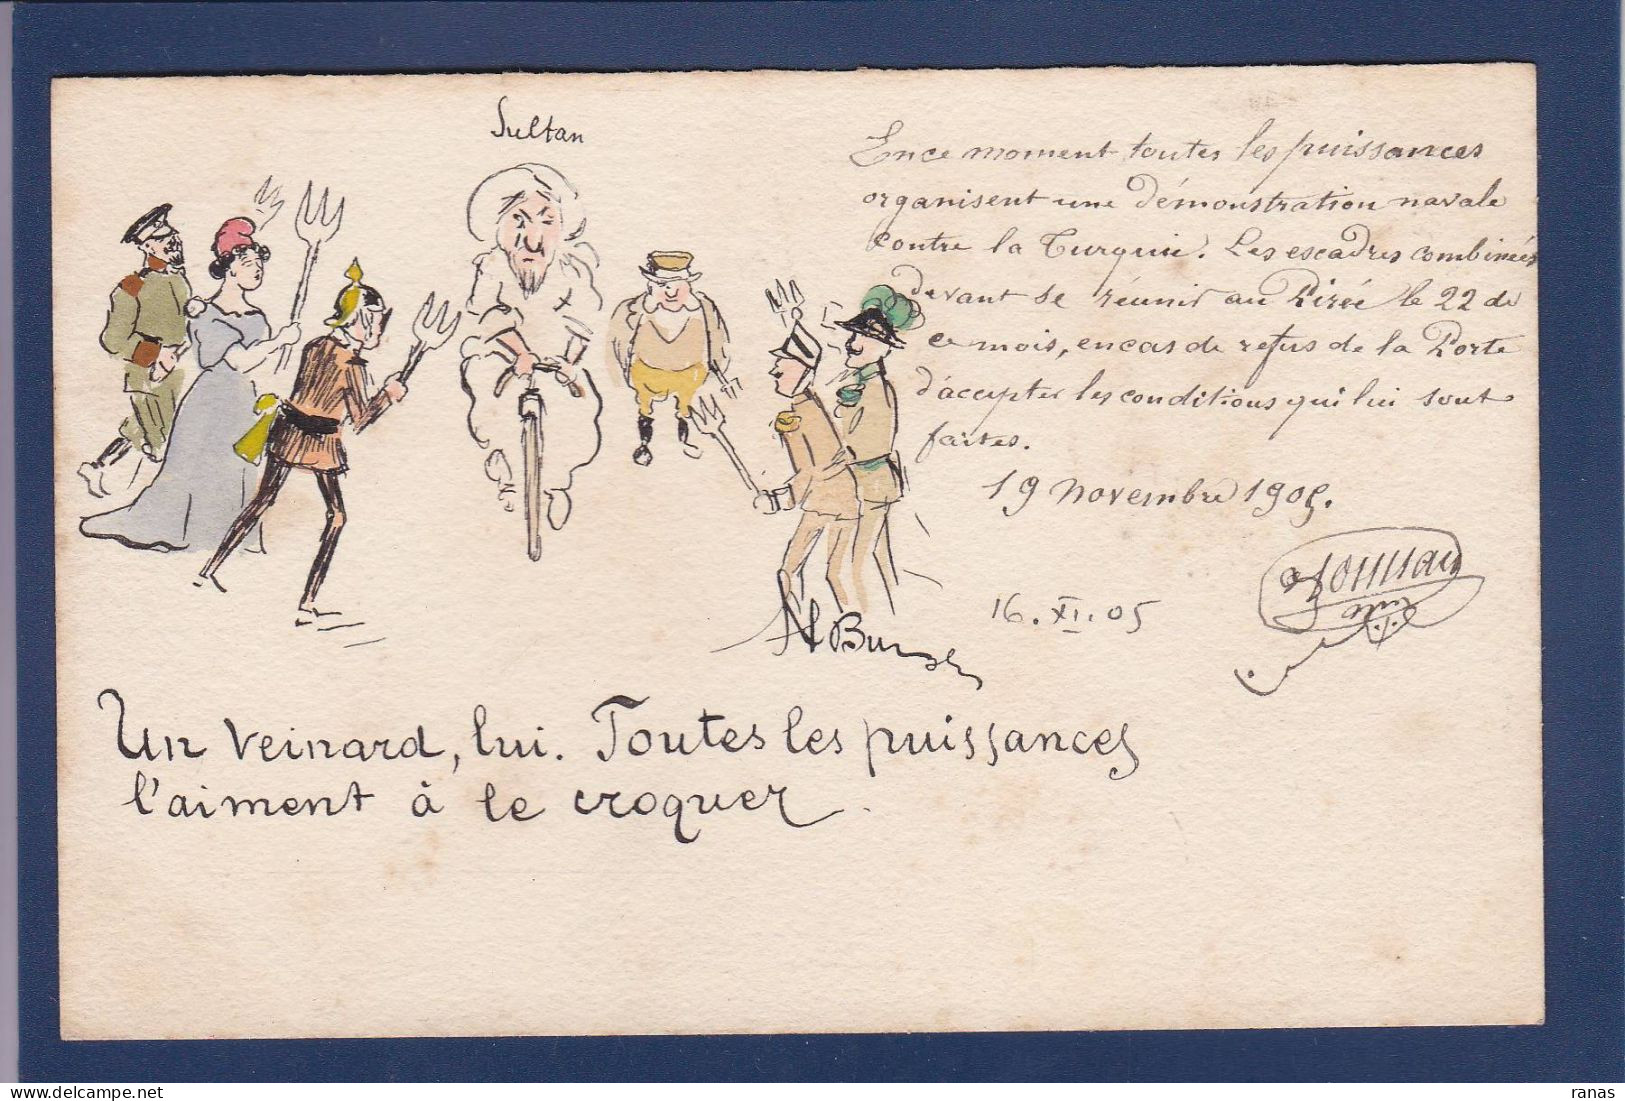 Sultan
En ce moment, toutes les puissances
organisent une démonstration navale
contre la Turquie. Les escadres combinées
devant se réunir au Pirée le 22 de
ce mois, en cas de refus de la Porte
d'accepter les conditions qui lui sont
faites.
19 novembre 1905.
16. XI. 05
Un veinard, lui. Toutes les puissances
l'aiment à le croquer.
ranas